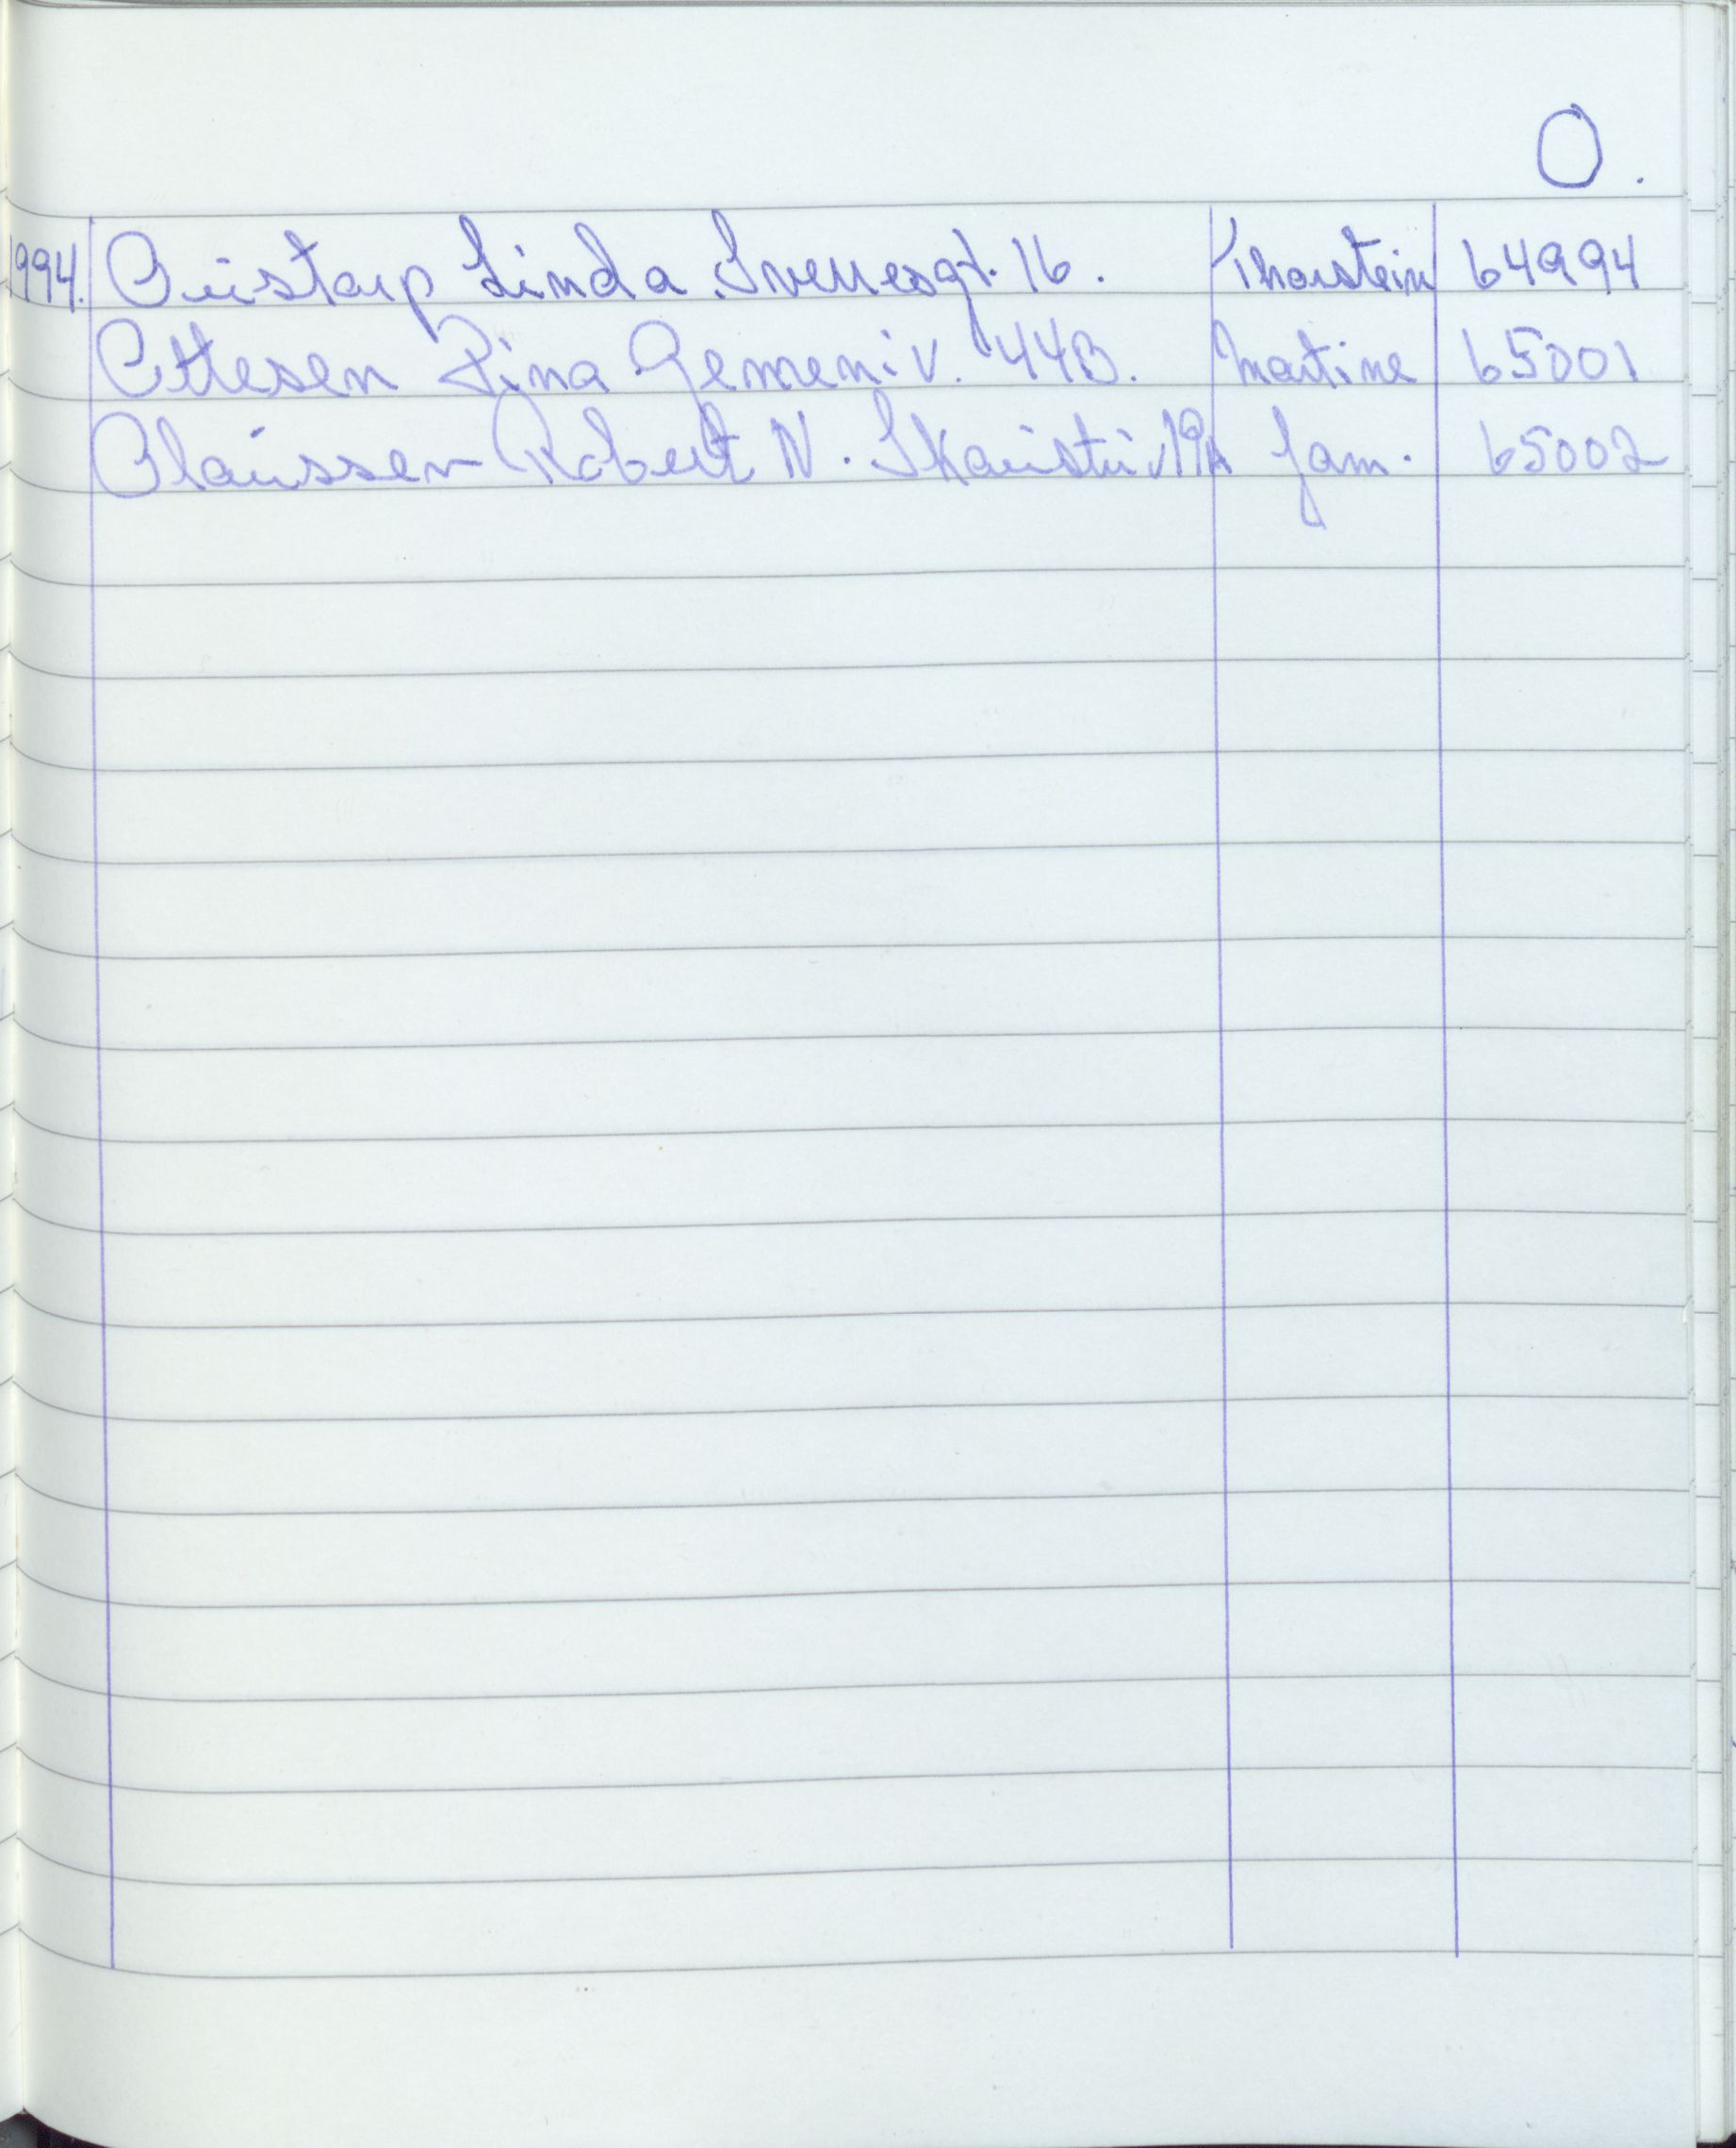 O.
1994. Oustorp Linda Sverresgt. 16. Thorstein 64994
Ottesen Rina Gemeniv. 44B. Martine 65001
Olaussen Robert N. 19A fam. 65002